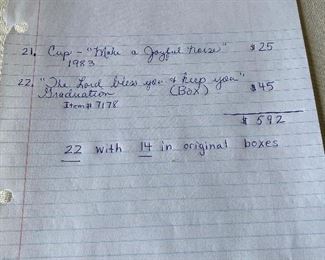 21. Cup - "Make a Joyful noise" $25
1983
22. "The Lord bless you & keep you" $45
Graduation (Box)
Item # 7178
$ 592
22 with 14 in original boxes